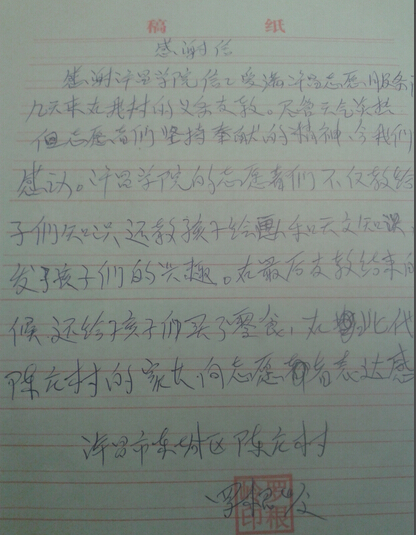 稿 纸
感谢信
感谢许昌学院信工爱满许昌志愿服务
九天来在我村的义务支教。尽管天气炎热
但志愿者们坚持奉献的精神令我们
感动。许昌学院的志愿者们不仅教给
子们知识还教孩子绘画和天文知识
发了孩子们的兴趣。在最后支教结束的
候还给孩子们买了零食,在此代
陈庄村的家长向志愿者表达感
许昌市东城区陈庄村